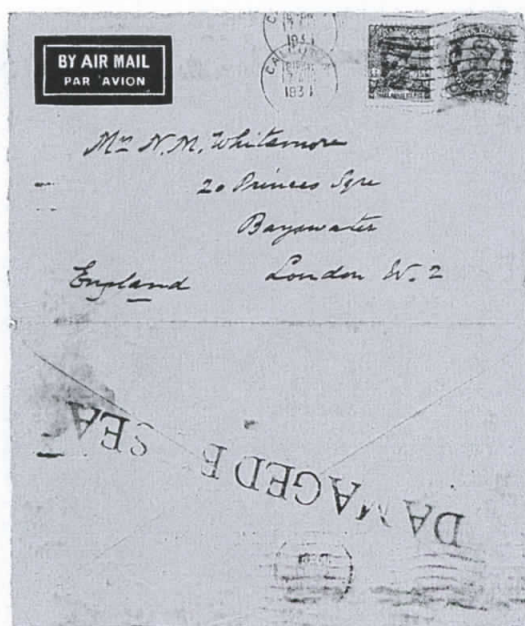 BY AIR MAIL
PAR AVION
CALCUTTA
1931
Mrs N. M. Whitamore
20 Princes Sqre
Bayswater
England London W. 2
DAMAGED SEA